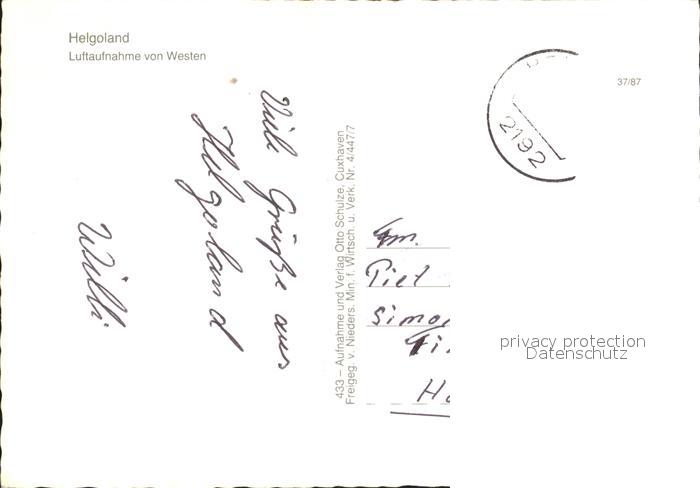 Helgoland
Luftaufnahme von Westen
37/87
2192
Viele Grüße aus
Helgoland
Willi
433 – Aufnahme und Verlag Otto Schulze, Cuxhaven
Freigeg. v. Nieders. Min. f. Wirtsch. u. Verk. Nr. 4/447/7
Fam.
Piet
Simo
privacy protection
Datenschutz